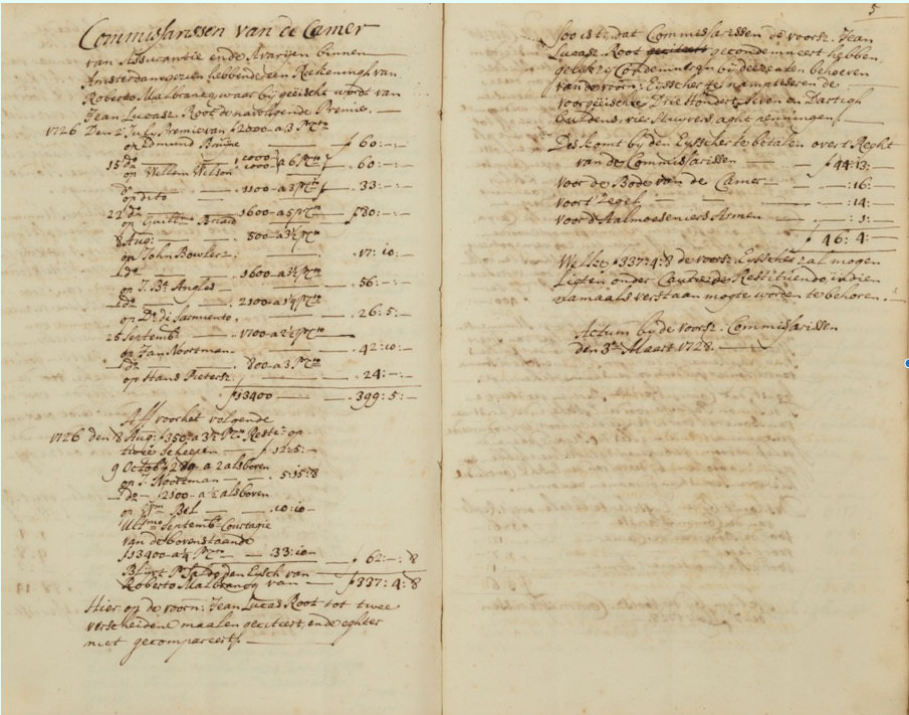 Commissarissen van de Camer
van Assurantie ende Avarijen binnen
Amsterdam gezien hebbende een Rekeningh van
Roberto Malbrancq, waar bij geëischt wordt van
Jean Lucas Root de navolgende Premie.
1726 Den 2 July Premie van f2000-a 3 P Cto
op Edmund Bruijne f 60:-:
15 do 1000 1000 a 6 P Cto
op Willem Wilson 60:-:
do 1100-a 3 P Cto
op dito f 33:-:
22 do 1600-a 5 P Cto
op Briard f 80:-:
8 Aug: 500-a 3½ P Cto
op John Bowler: 17:10:
do 1600-a 3½ P Cto
op J. Bt. Angles 56:-:
do 2100-a 1¼ P Cto
op Do. di Sarmiento. 26:5:
25 Septemb: 1700-a 2½ P Cto
op Jan Noortman 42:10:-
do 800-a 3 P Cto
op Hans Pieters: 24:-
f13400 399:5:-
Aff voor het volgende
1726 den 8 Aug: f350-a 3½ P Cto Resto op
twee Scheepen f 12:5:-
9 Octob: a 2 alsboven
op J. Noortman 5:15:8
do f2100-a ½ alsboven
op Bel 10:10-
Ultmo Septemb: Courtagie
van de bovenstaande
f13400-a¼ P Cto 33:10- f 62:-:8
Blijft Pr Saldo den Eysch van
Roberto Malbrancq van f337:4:8
Hier op de voorn: Jean Lucas Root tot twee
verscheidene maalen geciteert, ende eghter
niet gecompareert,
5
Soo ist dat Commissarissen de voorsz. Jean
Lucas Root geciteert gecondemneert hebben
gelijk zij Condemneren bij deezen ten behoeven
van de voorn: Eysscher te namptiseren de
voorgeëischte Drie Hondert Seven en Dartigh
Guldens, vier stuyvers, aght penningen,
Des komt bij den Eysscher te betalen over 't Recht
van de Commissarissen f 44:13:-
voor de Bode van de Camer :16:
voor 't Zegel :14:
voor d'Aalmoeseniers Armen :1:
f 46:4:
Welke f337:4:8 de voorsz. Eysscher zal mogen
Ligten onder Cautie de Restituendo, indien
namaals verstaan mogte worden te behoren.
Actum bij de voorsz. Commissarissen
den 3en Maart 1728.